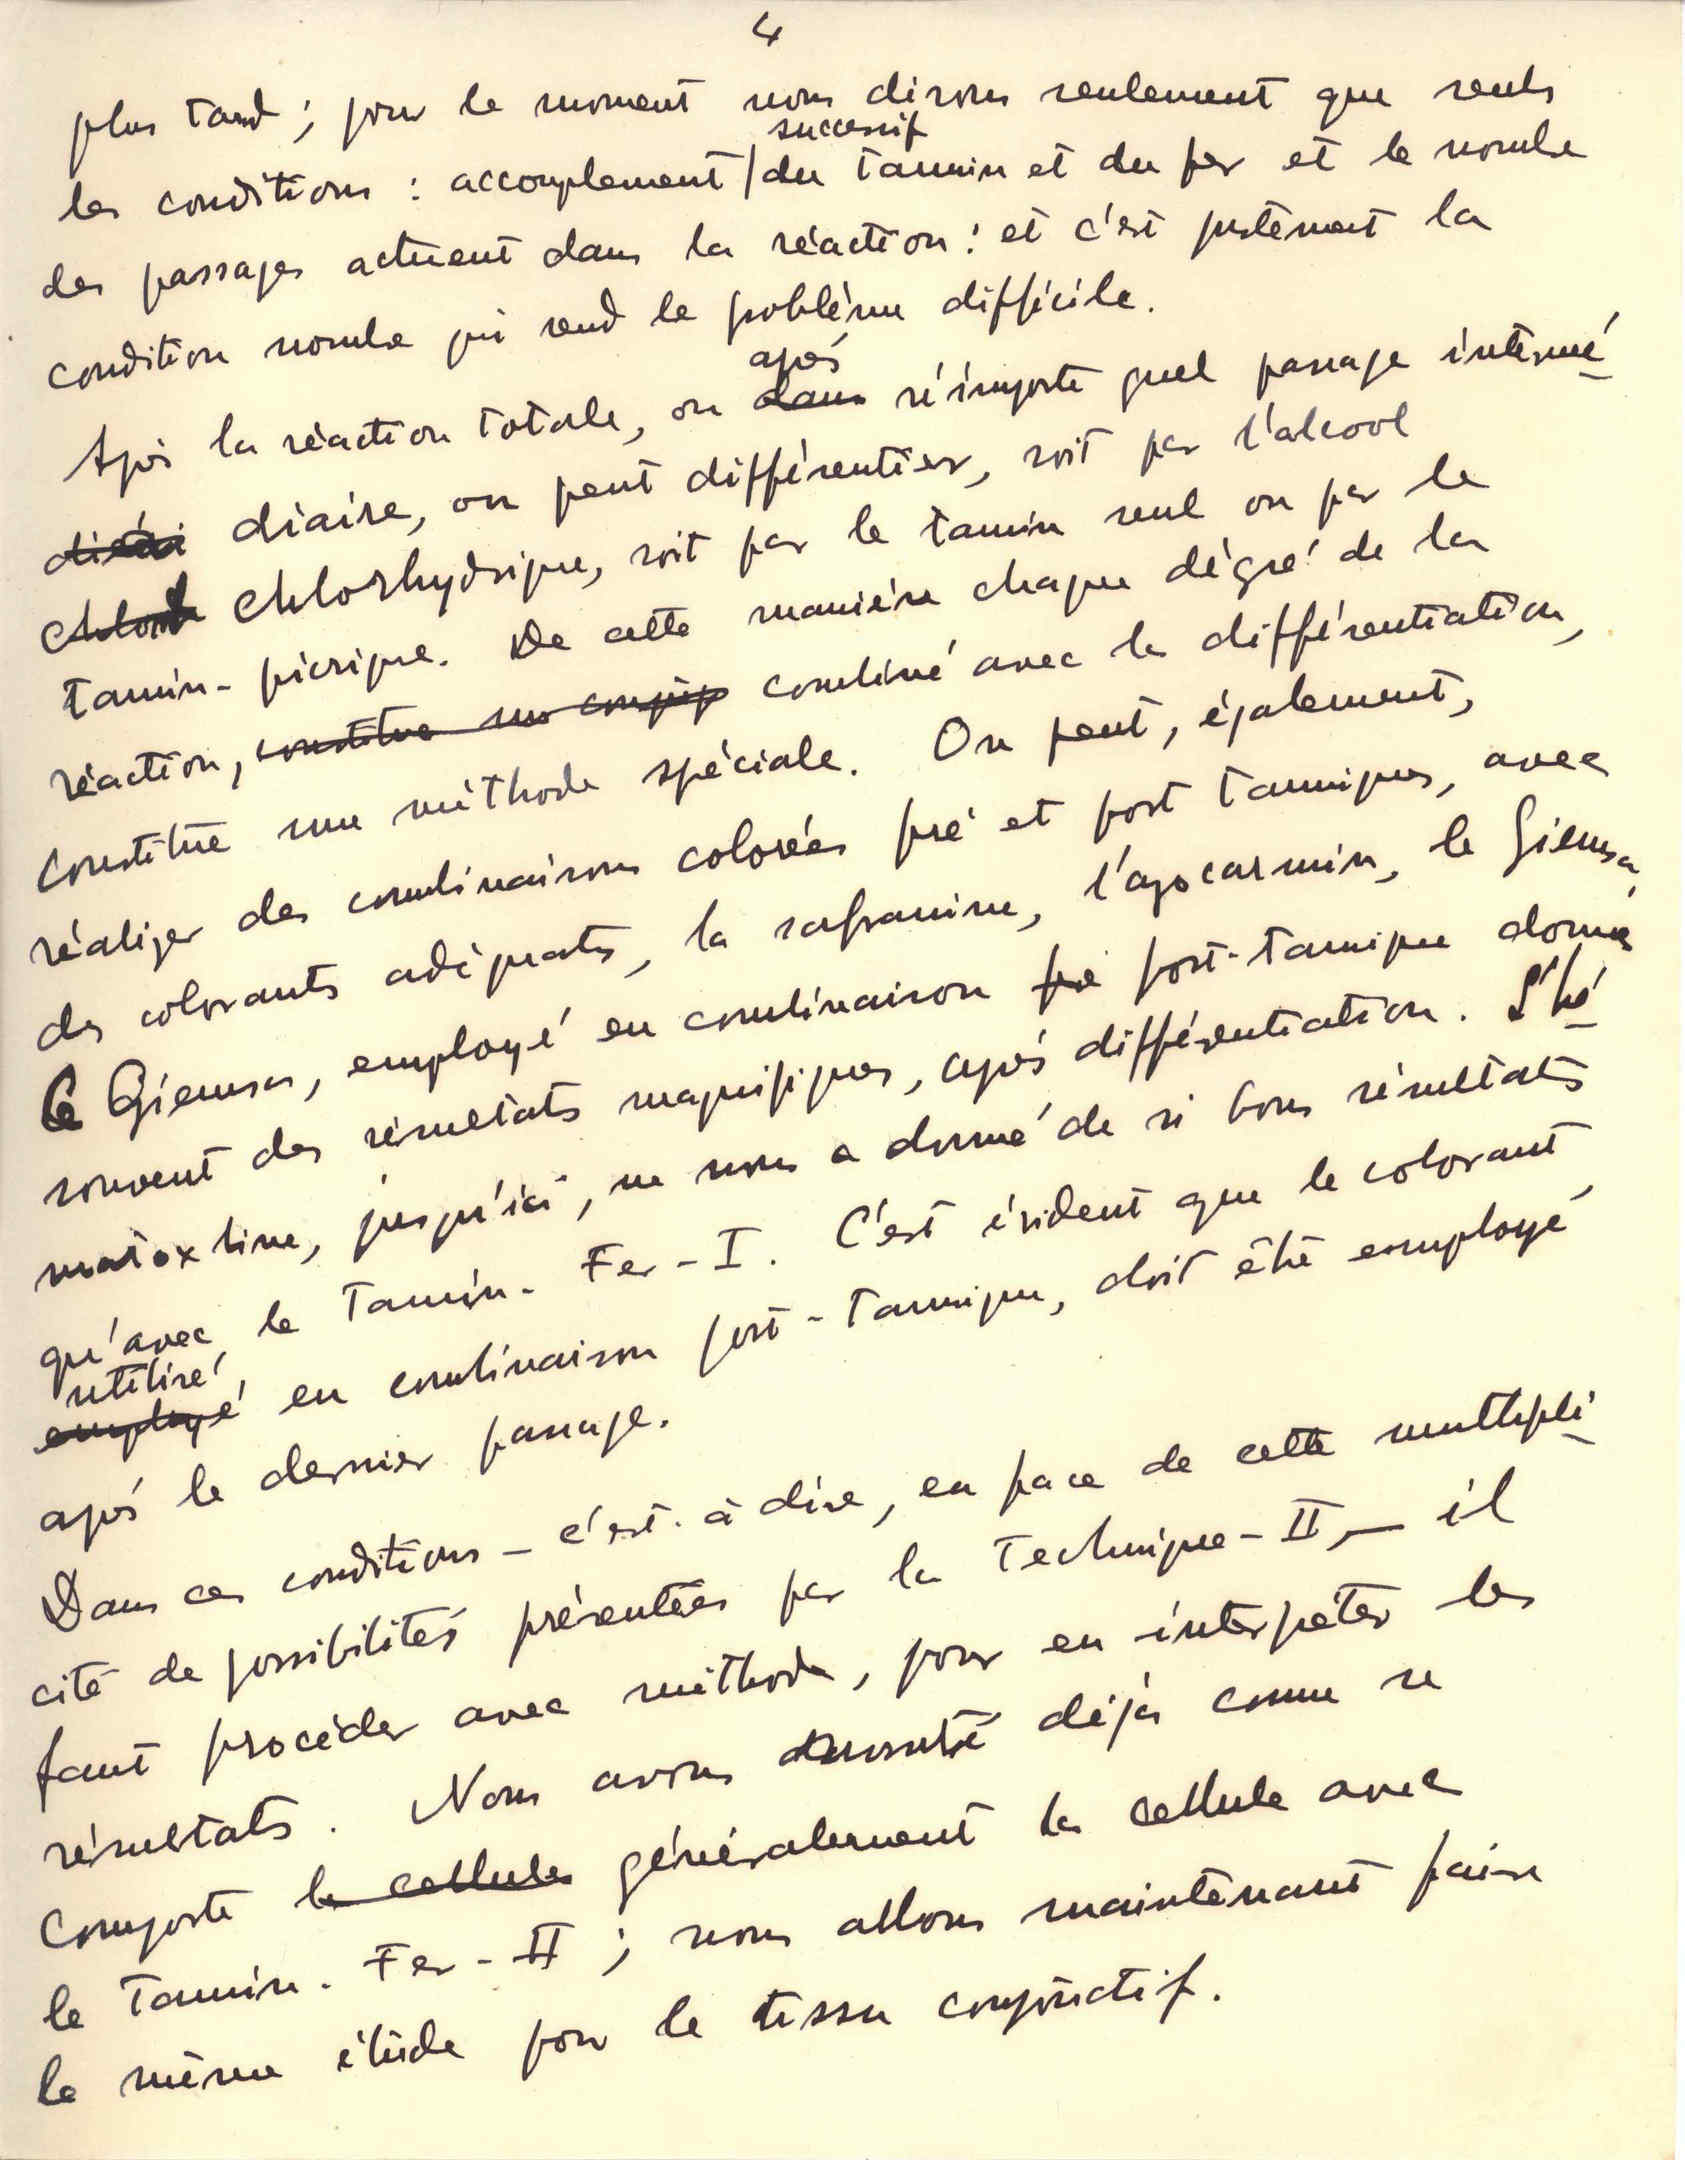 4
plus tard ; pour le moment nous disons seulement que seuls
successif
les conditions : accouplement / du tannin et du fer et le nombre
des passages actuent dans la réaction : et c'est justement la
condition nombre qui rend le problème difficile.
après
Après la réaction totale, ou dans n'importe quel passage intermé
diaire, on peut différentier, soit par l'alcool
chlorhydrique, soit par le tannin seul ou par le
tannin-picrique. De cette manière chaque dégré de la
réaction, constitue combiné avec la différentiation,
constitue une méthode spéciale. On peut, également,
réaliser des combinaisons colorées pré et post tanniques, avec
des colorants adéquats, la safranine, l'azocarmin, le Giemsa.
Le Giemsa, employé en combinaison post-tannique donne
souvent des résultats magnifiques, après différentiation. L'hé
matoxline, jusqu'ici, ne nous a donné de si bons résultats
qu'avec le Tannin-Fer-I. C'est évident que le colorant,
utilisé,
employé en combinaison post-tannique, doit être employé
après le dernier passage.
Dans ces conditions - c'est-à dire, en face de cette multipli
cité de possibilités présentées par la Technique-II, — il
faut procéder avec méthode, pour en interpéter les
résultats. Nous avons montré déjà comme se
comporte la cellule généralement la cellule avec
le Tannin-Fer-II ; nous allons maintenant faire
le même étude pour le tissu conjonctif.